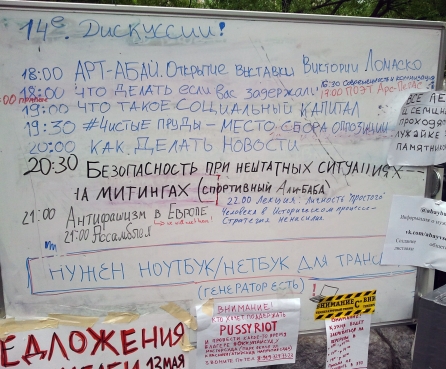 14е. Дискуссии!
18:00 АРТ-АБАЙ. Открытие выставки Виктории Ломаско
18:00 ЧТО ДЕЛАТЬ ЕСЛИ ВАС ЗАДЕРЖАЛИ
17:00 ПОЭТ
19:00 ЧТО ТАКОЕ СОЦИАЛЬНЫЙ КАПИТАЛ
19:30 #ЧИСТЫЕ ПРУДЫ - МЕСТО СБОРА ОППОЗИЦИИ
20:00 КАК ДЕЛАТЬ НОВОСТИ
20:30 БЕЗОПАСНОСТЬ ПРИ НЕШТАТНЫХ СИТУАЦИЯХ
НА МИТИНГАХ (спортивный Алибаба
22.00 Лекция: Личность "простого"
21:00 Антифашизм в Европе
Человека в Историческом процессе-
Стратегия ненасилия.
21:00 Ассамблея
НУЖЕН НОУТБУК/НЕТБУК ДЛЯ ТРАНС
(ГЕНЕРАТОР ЕСТЬ)
ВСЕ
ПРОХОДЯТ
ЛУЖАЙКЕ
ПАМЯТНИК
ВНИМАНИЕ!
КТО ХОЧЕТ ПОДДЕРЖАТЬ
PUSSYRIOT
ВНИМАНИЕ
ЕДЛОЖЕНИЯ
13 МАЯ